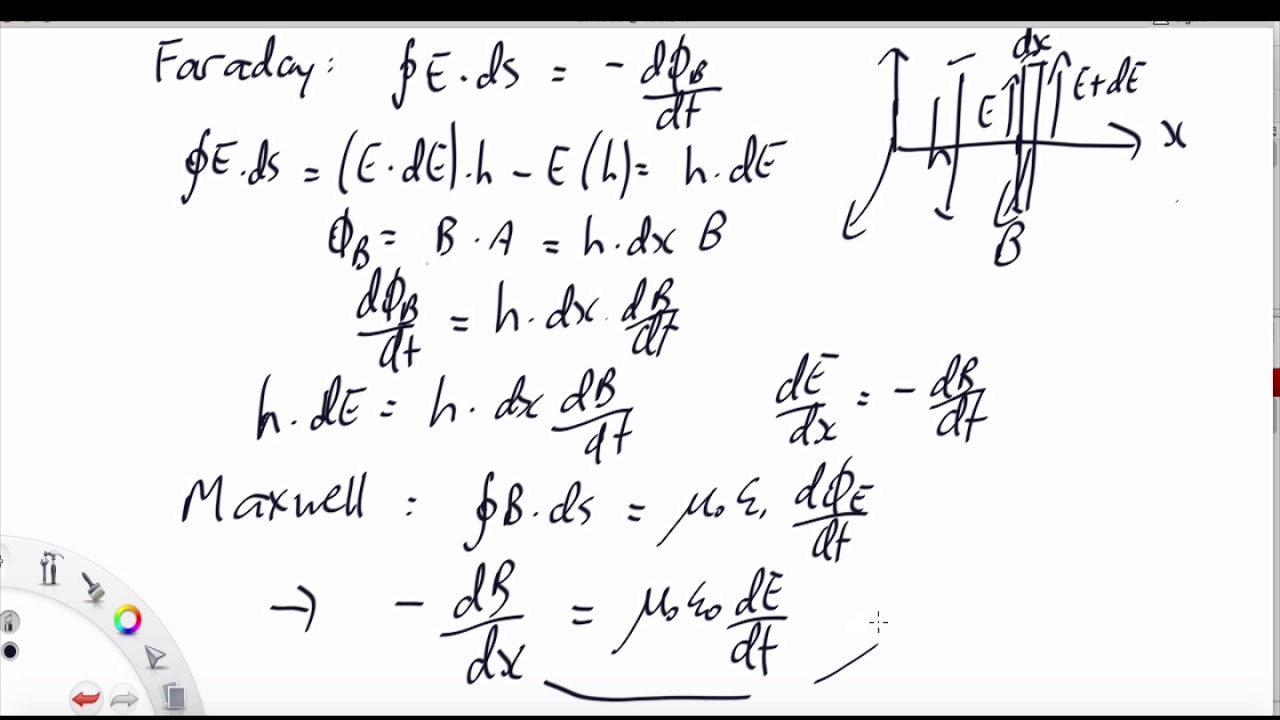 Faraday: ∮E·ds = - dΦ_B/dt
∮E·ds = (E·dE)·h - E(h) = h·dE
Φ_B = B·A = h·dx B
dΦ_B/dt = h·dx·dB/dt
h·dE = h·dx dB/dt
dE/dx = - dB/dt
Maxwell: ∮B·ds = μ₀ε, dΦ_E/dt
→ - dB/dx = μ₀ε₀ dE/dt
dx
E
E+dE
h
x
B